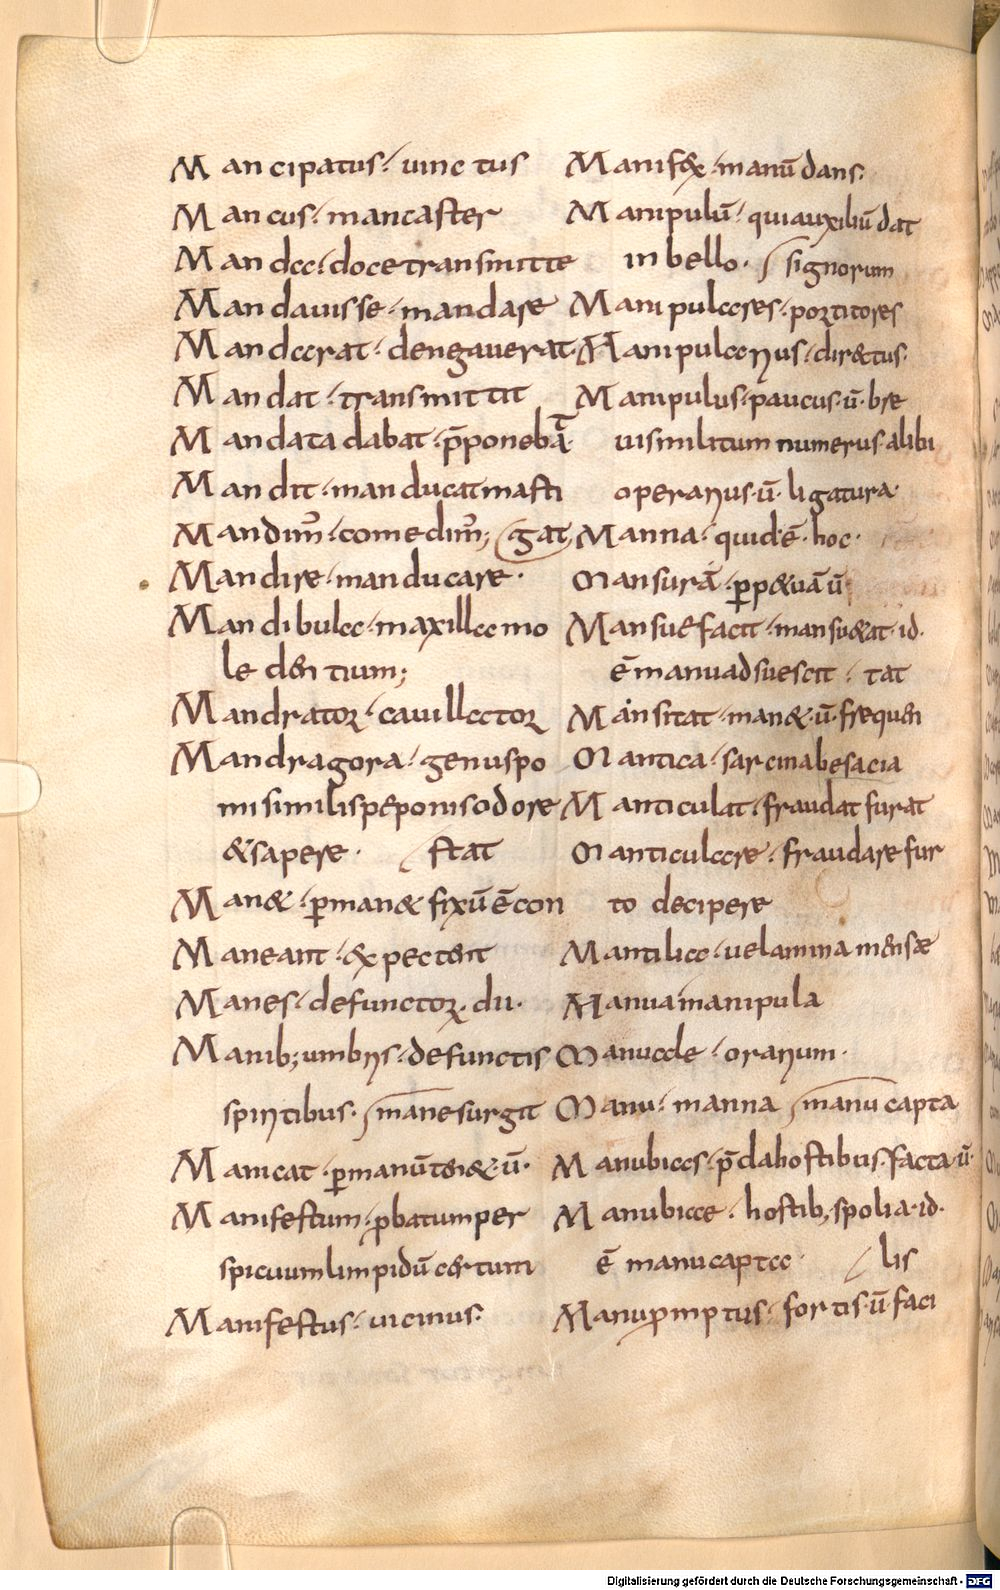 Mancipatus· uinctus
Mancus· mancaster
Manda· doce transmitte
Mandauisse· mandare
Mandarat· denegauerat·
Mandat· transmittit
Mandata dabat· p̄ponebā
Mandit· manducat masti
Mandim᷒· comedim᷒; gat;
Mandire· manducare·
Mandibula· maxilla mo
le dentium;
Mandrator· cauillator
Mandragora· genus po
mi similis peponis odore
& sapere· stat
Man&· ꝑman& fixū ē con
Maneant· expectent
Manes· defunctoꝝ· dii·
Manib; umbris· defunctis
spiritibus· mane surgit
Manicat· ꝑ manū ten&· ū·
Manifestum· ꝓbatum per
spicuum limpidū certum
Manifestus· uicinus·
Manif&x· manū dans·
Manipulū· qui auxiliū dat
in bello· signorum
Manipulares· portitores
Manipularius· dir&tus·
Manipulus· paucus· ū· bre
uis militum numerus alibi
operarius· ū· ligatura·
Manna· quid· ē· hoc·
Mansurā· ꝑp&uā ū
Mansuefacit· mansu&at· id·
ē manu adsuescit· tat
Mansitat· man&· ū· frequen
Mantica· sarcina besacia
Manticulat· fraudat furat
Manticulare· fraudare fur
to decipere
Mantilia· uelamina mensæ
Manua manipula
Manuale· orarium·
Manu· manna manu capta
Manubias· p̄da hostibus· facta· ū·
Manubiae· hostib; spolia· id·
ē manu capta· lis
Manuꝓmptus· fortis· ū· faci
Digitalisierung gefördert durch die Deutsche Forschungsgemeinschaft - DFG